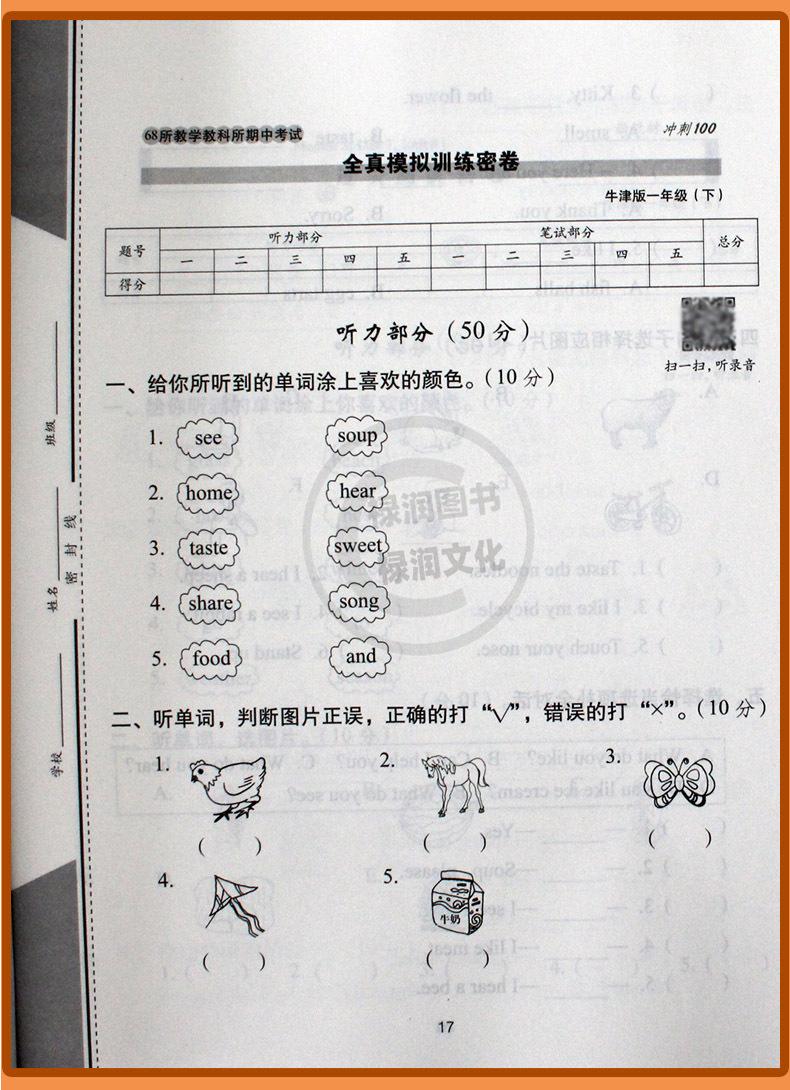 68所教学教科所期中考试
冲刺100
全真模拟训练密卷
牛津版一年级（下）
题号 听力部分 笔试部分 总分
一 二 三 四 五 一 二 三 四 五
得分
听力部分（50分）
扫一扫，听录音
一、给你所听到的单词涂上喜欢的颜色。（10分）
1. see soup
2. home hear
3. taste sweet
4. share song
5. food and
禄润图书
禄润文化
二、听单词，判断图片正误，正确的打“√”，错误的打“×”。（10分）
1. 2. 3.
( ) ( ) ( )
4. 5.
牛奶
( ) ( )
17
学校
姓名
班级
密封线